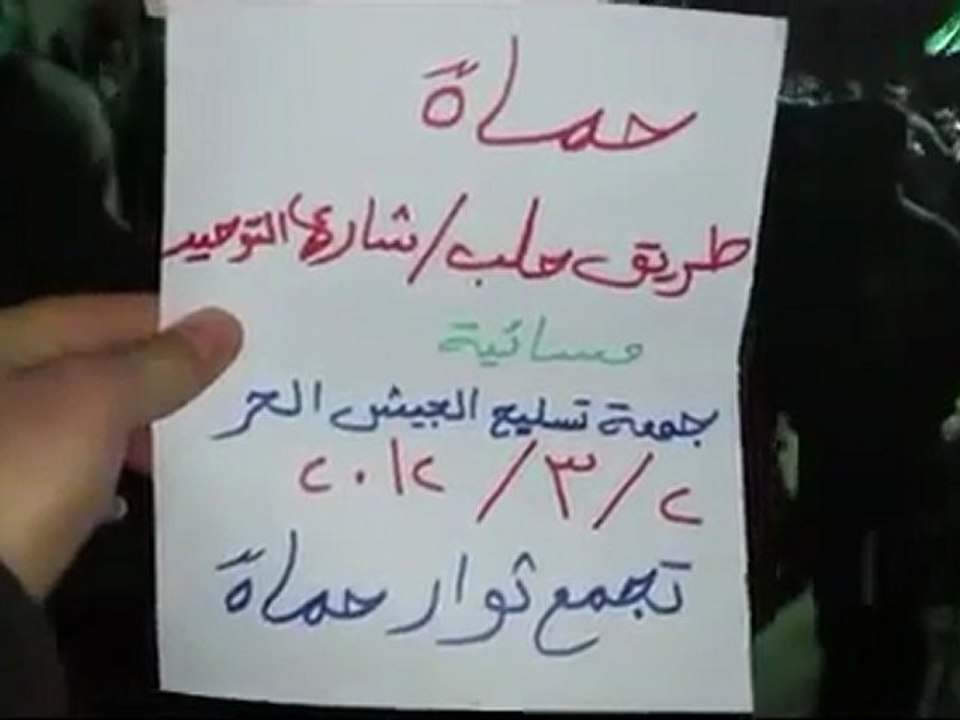 حماة
طريق حلب / شارع التوحيد
مسائية
جمعة تسليح الجيش الحر
٢ / ٣ / ٢٠١٢
تجمع ثوار حماة